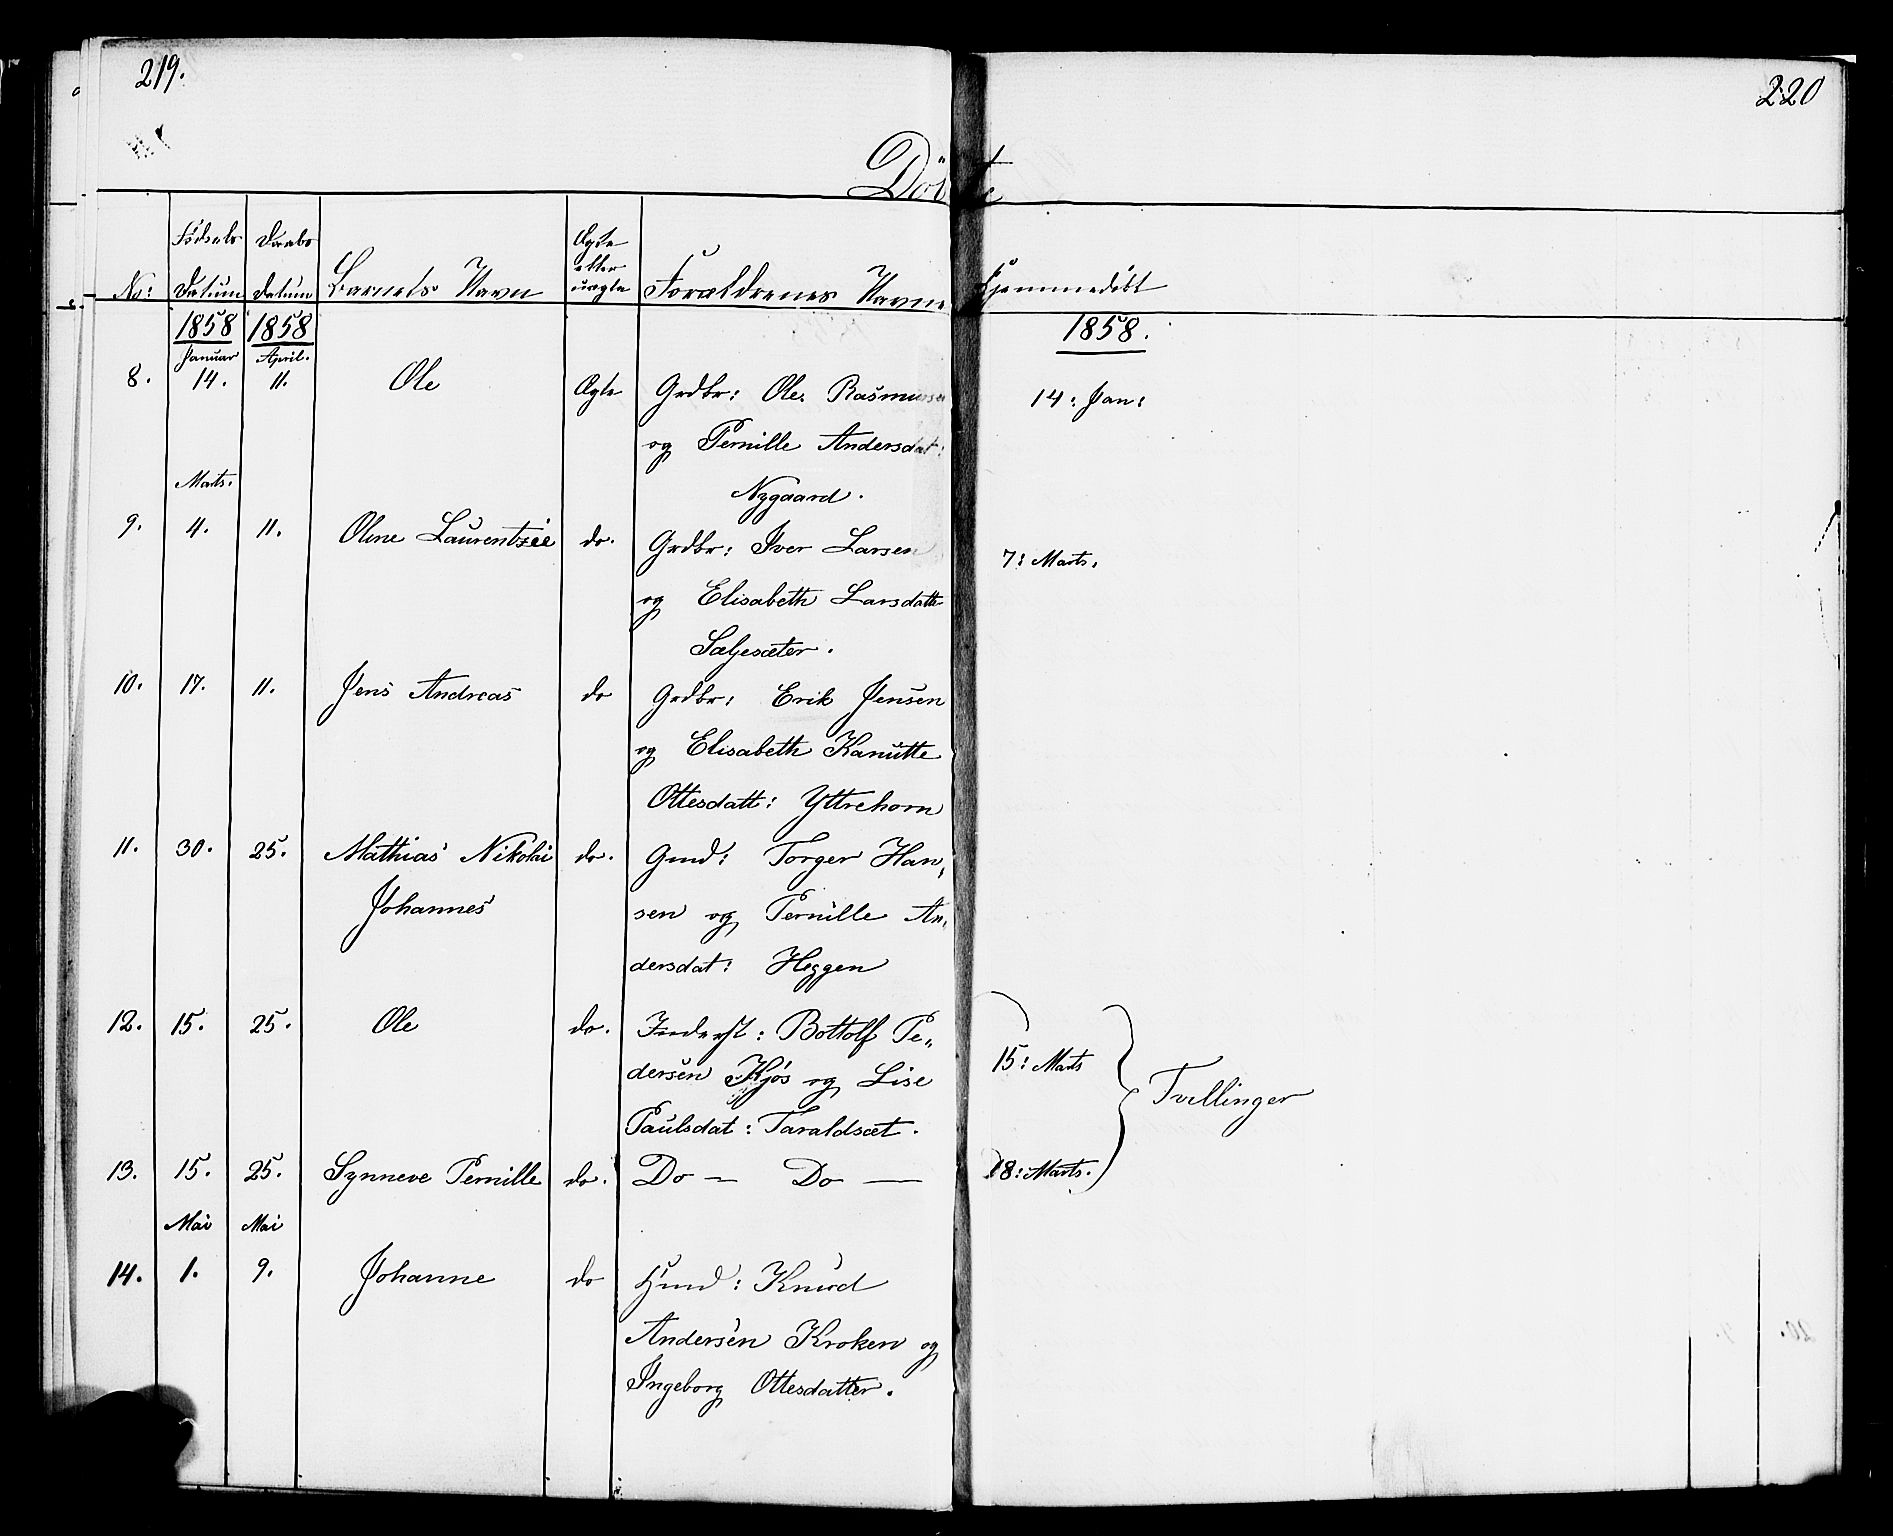 219.
220
Døbte
No:
Fødsels Datum
Daabs Datum
Barnets Navn
Ægte eller uægte
Forældrenes Navne
Hjemmedøbt
1858 1858 1858.
Januar April.
8. 14. 11. Ole Ægte Grdbr: Ole Rasmussen 14: Jan:
og Pernille Andersdat:
Nygaard.
Marts.
9. 4. 11. Oline Laurentzie do. Grdbr: Iver Larsen 7: Marts.
og Elisabeth Larsdatte
Sæljesæter.
10. 17. 11. Jens Andreas do Grdbr: Erik Jensen
og Elisabeth Kanutte
Ottesdatt: Yttrehorn
11. 30. 25. Mathias Nikolai do. Gmd: Torger Han,
Johannes sen og Pernille An,
dersdat: Heggen
12. 15. 25. Ole do. Inderst: Bottolf Pe„ 15: Marts
dersen Kjøs og Lise Tvillinger
Paulsdat: Taraldsæt.
13. 15. 25. Synneve Pernille do. Do — Do — 18: Marts.
Mai Mai
14. 1. 9. Johanne do Hmd: Knud
Andersen Kroken og
Ingeborg Ottesdatter.